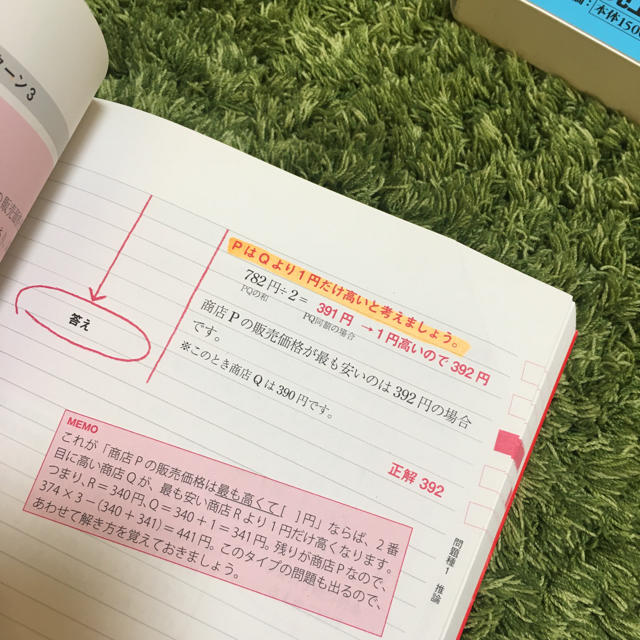 ターン3
本体150
PはQより1円だけ高いと考えましょう。
782円÷2= 391円 →1円高いので392円
PQの和 PQ同額の場合
商店Pの販売価格が最も安いのは392円の場合
です。
※このとき商店Qは390円です。
答え
正解 392
MEMO
これが「商店Pの販売価格は最も高くて[ ]円」ならば、2番
目に高い商店Qが、最も安い商店Rより1円だけ高くなります。
つまり、R=340円、Q=340+1=341円。残りが商店Pなので、
374×3-(340+341)=441円。このタイプの問題も出るので、
あわせて解き方を覚えておきましょう。
問題種1 推論